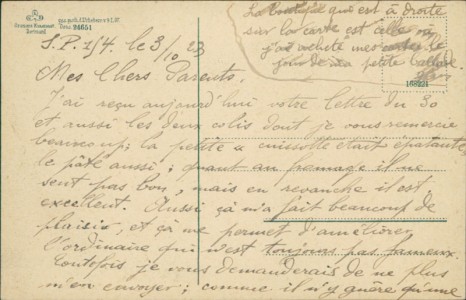 La boutique qui est à droite
sur la carte est celle où
j'ai acheté mes cartes le
jour de ma petite ballade.
168221
24651
S.P. 214. le 3/10 23
Mes Chers Parents.
J'ai reçu aujourd'hui votre lettre du 30
et aussi les deux colis dont je vous remercie
beaucoup; la petite cuissotte était épatante
le pâté aussi; quant au fromage il ne
sent pas bon, mais en revanche il est
excellent. Aussi ça m'a fait beaucoup de
plaisir, et ça me permet d'améliorer
l'ordinaire qui n'est toujours pas fameux.
Toutefois je vous demanderais de ne plus
m'en envoyer; comme il n'y a guère qu'une